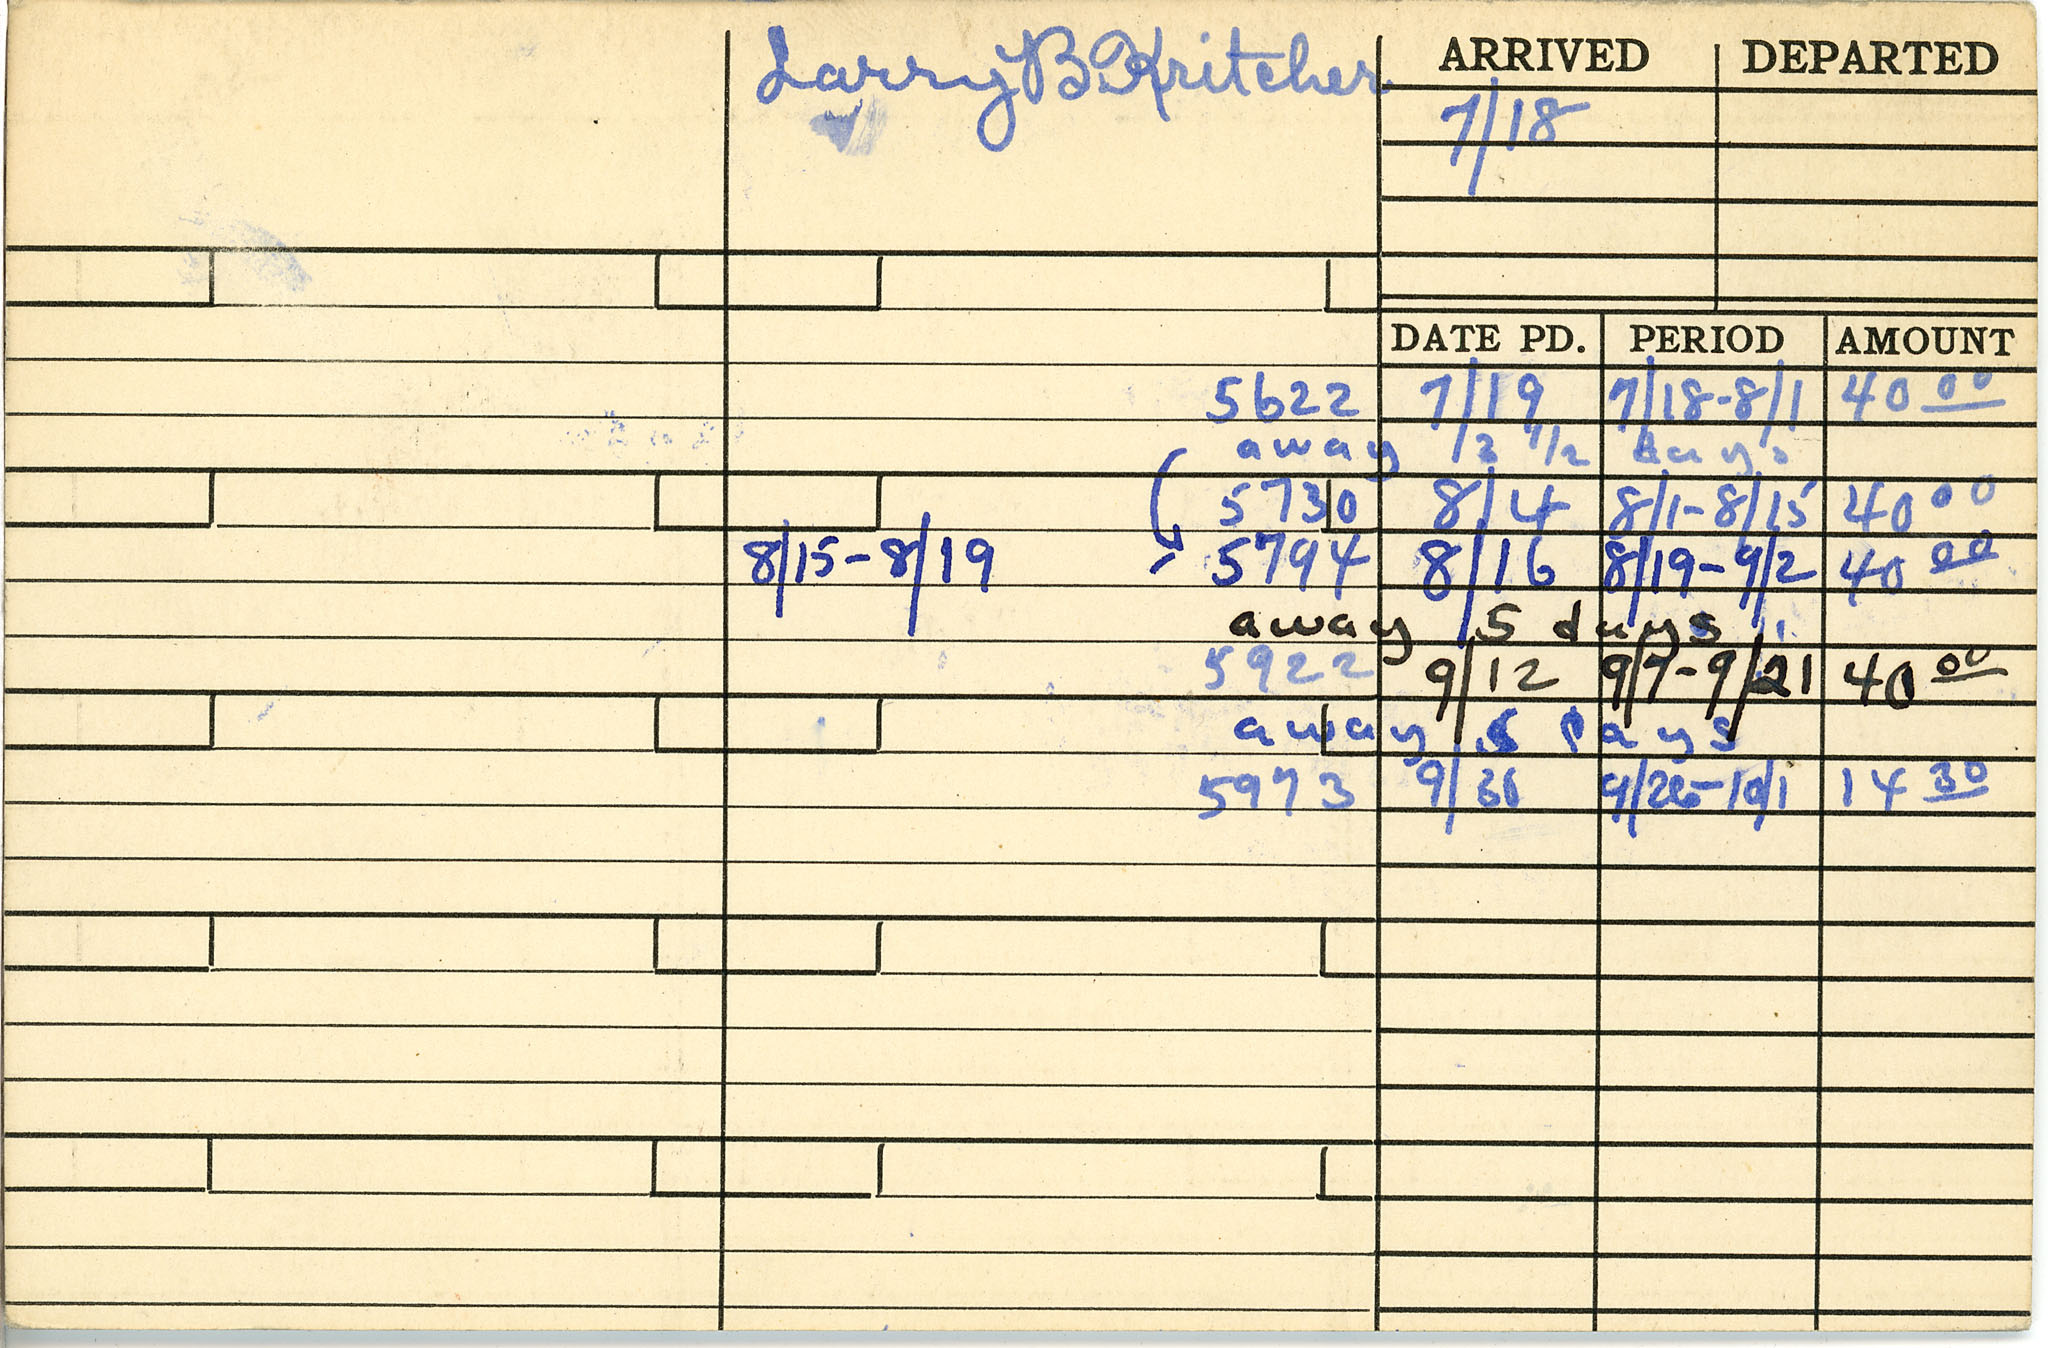 Larry B. Kritcher ARRIVED DEPARTED
7/18
DATE PD. PERIOD AMOUNT
5622 7/19 7/18-8/1 40 00
away 1/2 days
5730 8/4 8/1-8/15 40 00
8/15-8/19 5794 8/16 8/19-9/2 40 00
away 5 days
5922 9/12 9/7-9/21 40 00
away 5 Days
5973 9/30 9/26-10/1 14 30